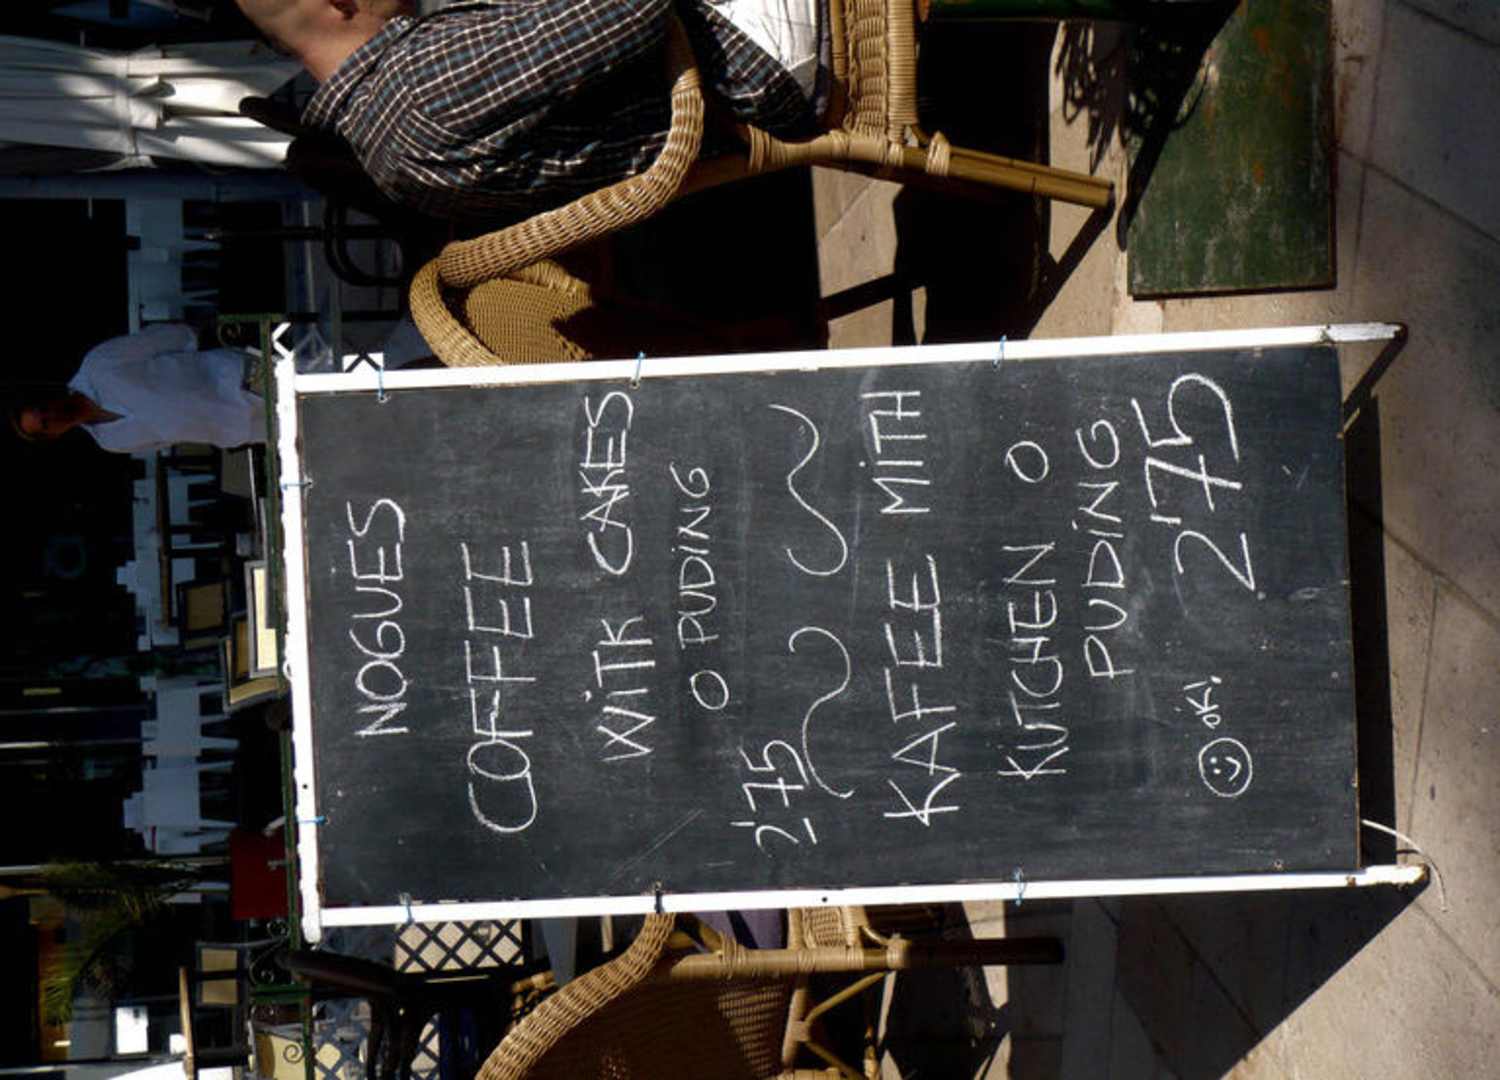 NOGUES
COFFEE
WiTK CAKES
O PUDiNG
2'75
KAFEE MiTH
KUTCHEN O
PUDiNG
oK! 2'75